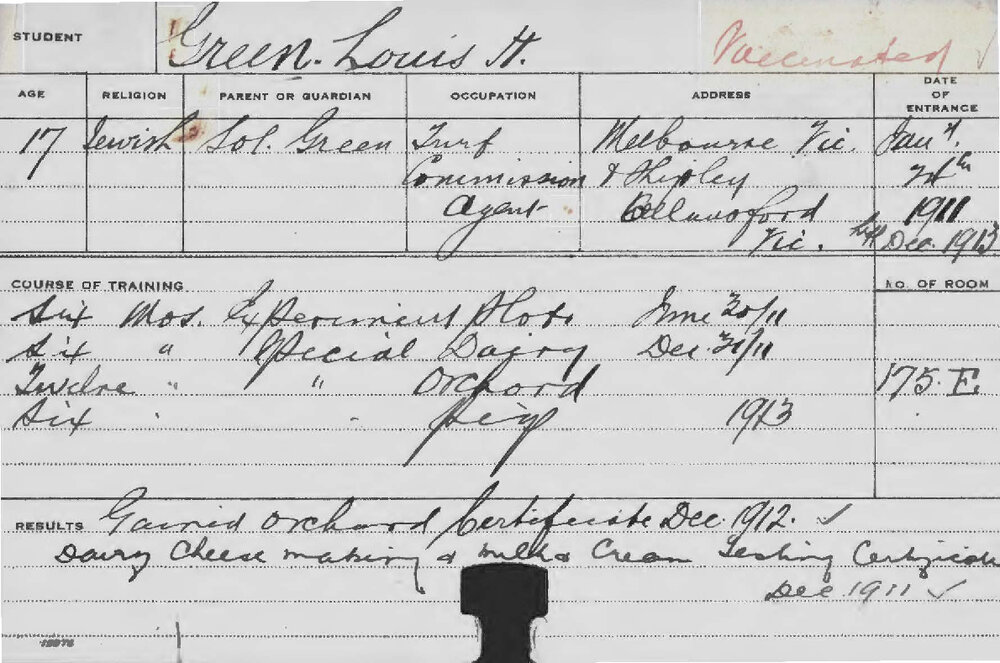 STUDENT Green. Louis H. Vaccinated ✓
AGE RELIGION PARENT OR GUARDIAN OCCUPATION ADDRESS DATE OF ENTRANCE
17 Jewish Sol. Green Turf Melbourne Vic. Jany.
Commission & Shipley
Agent Allansford 1911
Vic. left Dec. 1913
COURSE OF TRAINING NO. OF ROOM
Six Mos. Experiment Plots June 30/11
Six " Special Dairy Dec. 31/11
Twelve " " Orchard 175. E.
Six " " Pig 1913
RESULTS Gained Orchard Certificate Dec. 1912. ✓
Dairy Cheese making & milk & Cream Testing Certificate
Dec 1911 ✓